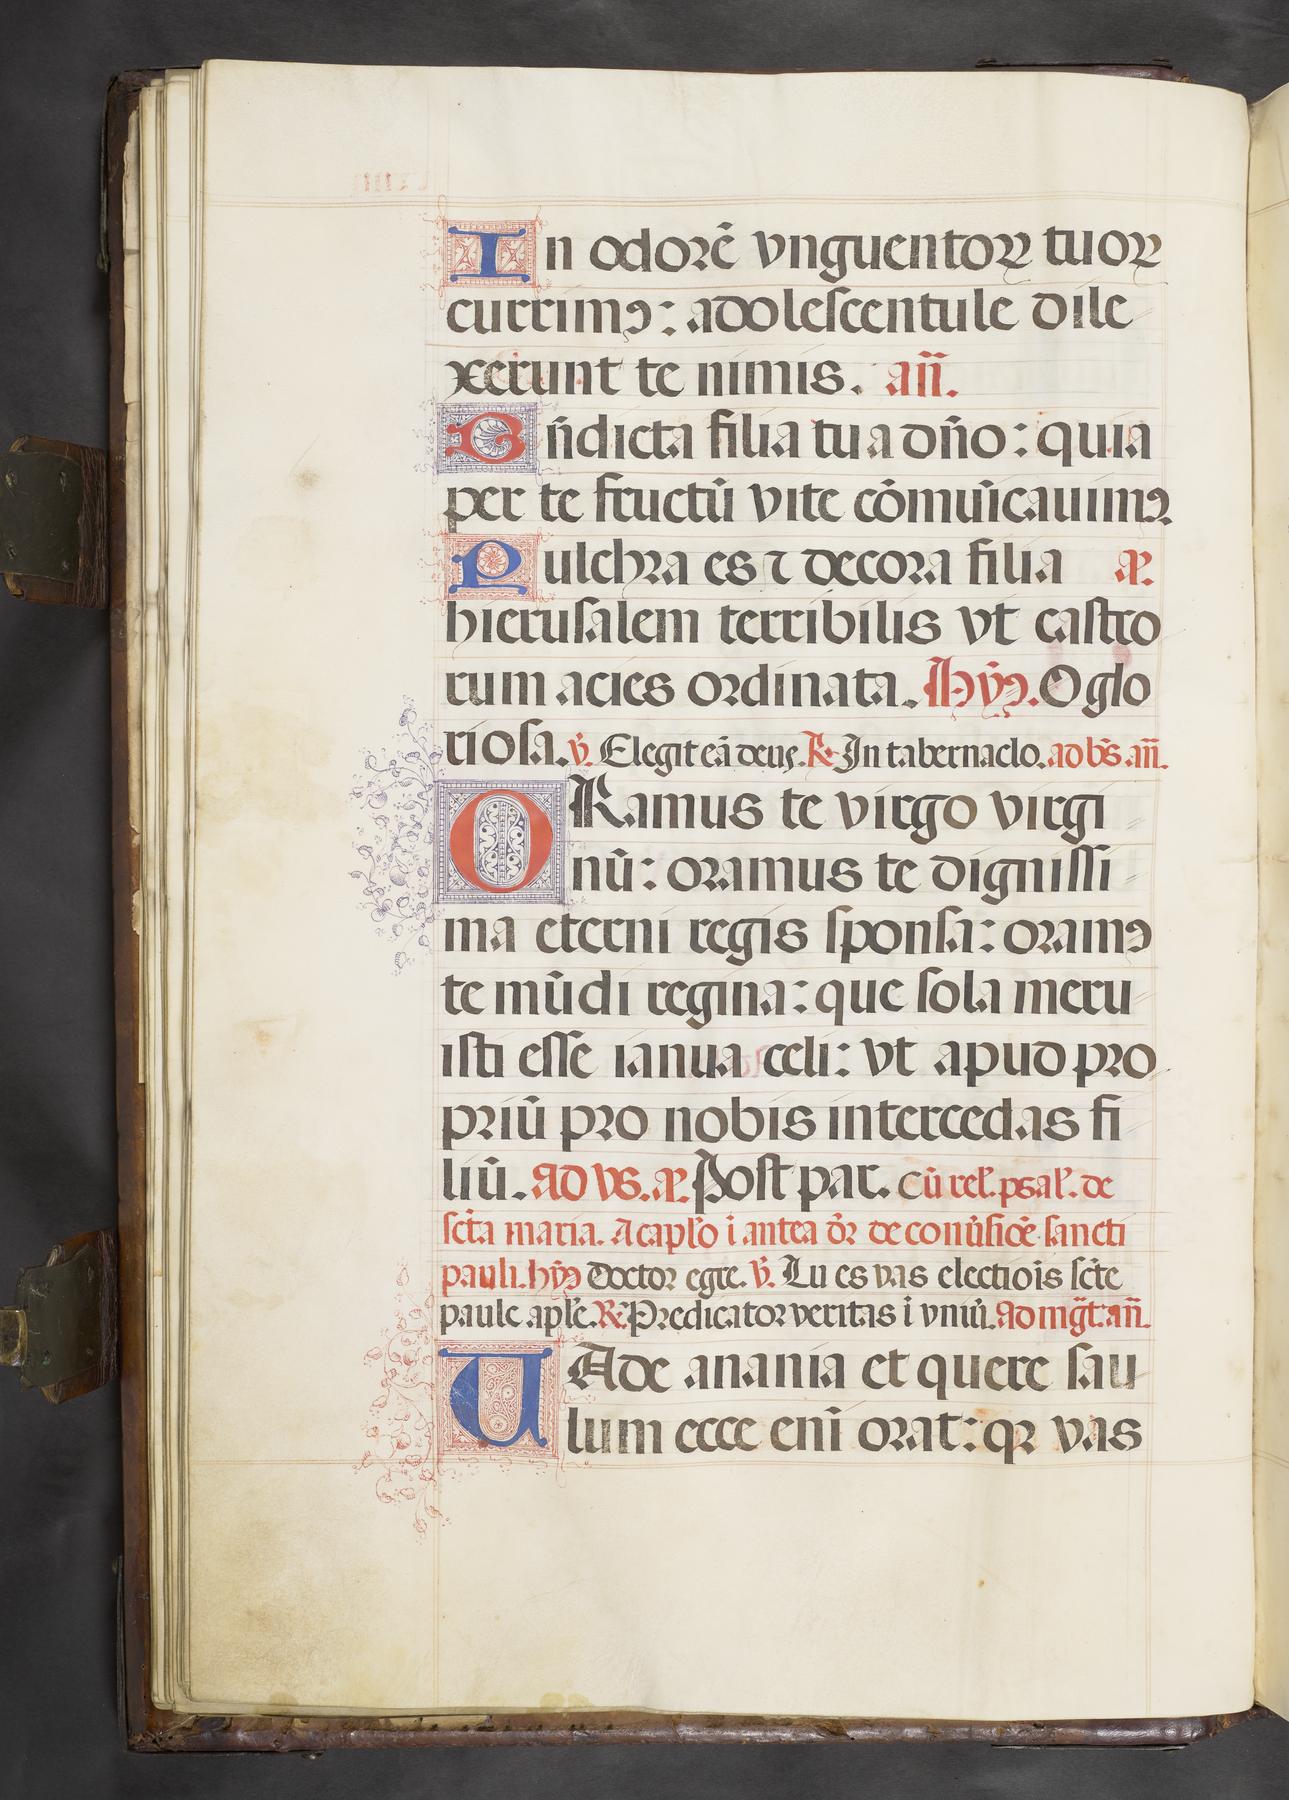 In odorē vnguentoꝝ tuoꝝ
currimꝰ: adolescentule dile
xerunt te nimis. añ.
Bñdicta filia tu a dño: quia
per te fructū vite cōmuīcauimꝰ.
Pulchra es ⁊ decora filia a͞.
hierusalem terribilis vt castro
rum acies ordinata. Hỹꝰ. O glo
riosa. v̄. Elegit eā deus. R. In tabernaclo. ad bs̄ añ.
ORamus te virgo virgi
nū: oramus te dignissi
ma eterni regis sponsa: oramꝰ
te mūdi regina: que sola meru
isti esse ianua celi: vt apud pro
priū pro nobis intercedas fi
liū. ad vs. a͞. Post par. Cū rel'. psal'. de
sct̄a maria. A capl'o ī antea dr̄ de conũsiōe sancti
pauli. hỹꝰ Doctor egre. v̄. Tu es vas electiōis sct̄e
paule apl'e. R̄. Predicator veritas ī vniũ. Ad mg̃t. añ.
UAde anania et quere sau
lum ecce enī orat: qꝛ vas